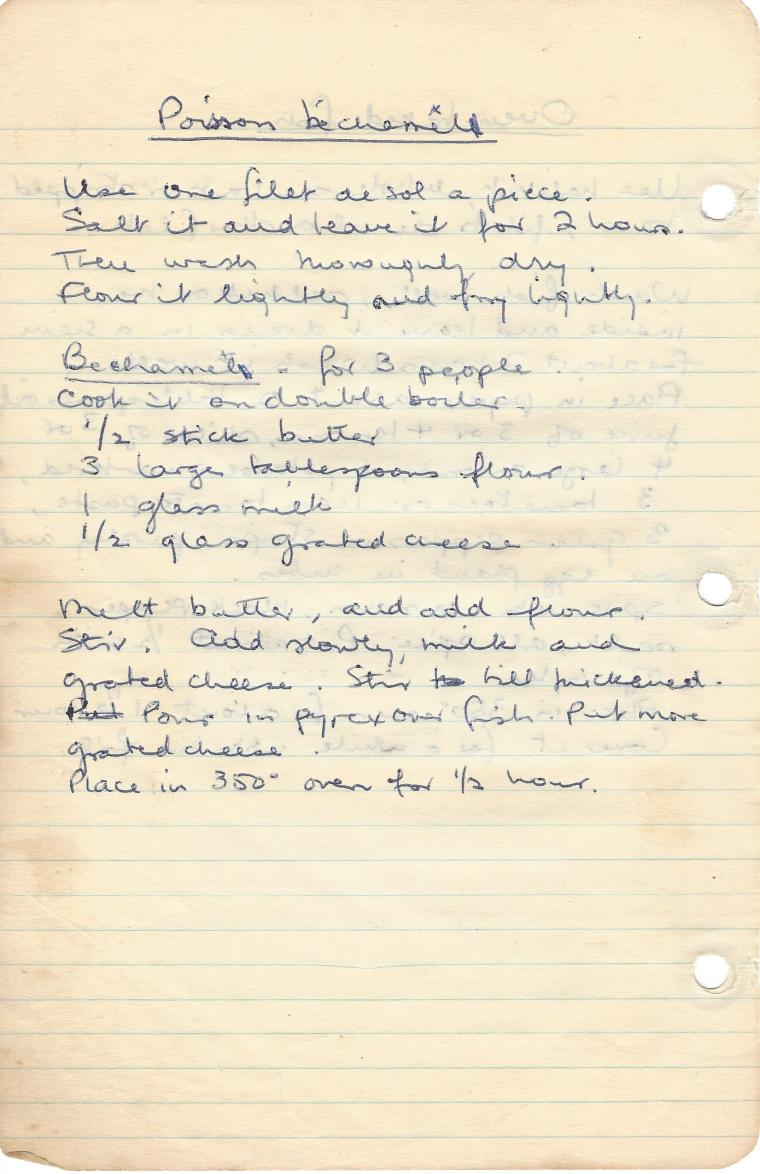 Poisson béchamèl
Use one filet de sol a piece.
Salt it and leave it for 2 hours.
Then wash thoroughly, dry.
Flour it lightly and fry lightly.
Bechamèl - for 3 people.
Cook it on double boiler
1/2 stick butter
3 large tablespoons flour.
1 glass milk
1/2 glass grated cheese
Melt butter, and add flour.
Stir. Add slowly, milk and
grated cheese. Stir to till thickened.
Put Pour in pyrex over fish. Put more
grated cheese.
Place in 350° oven for 1/2 hour.